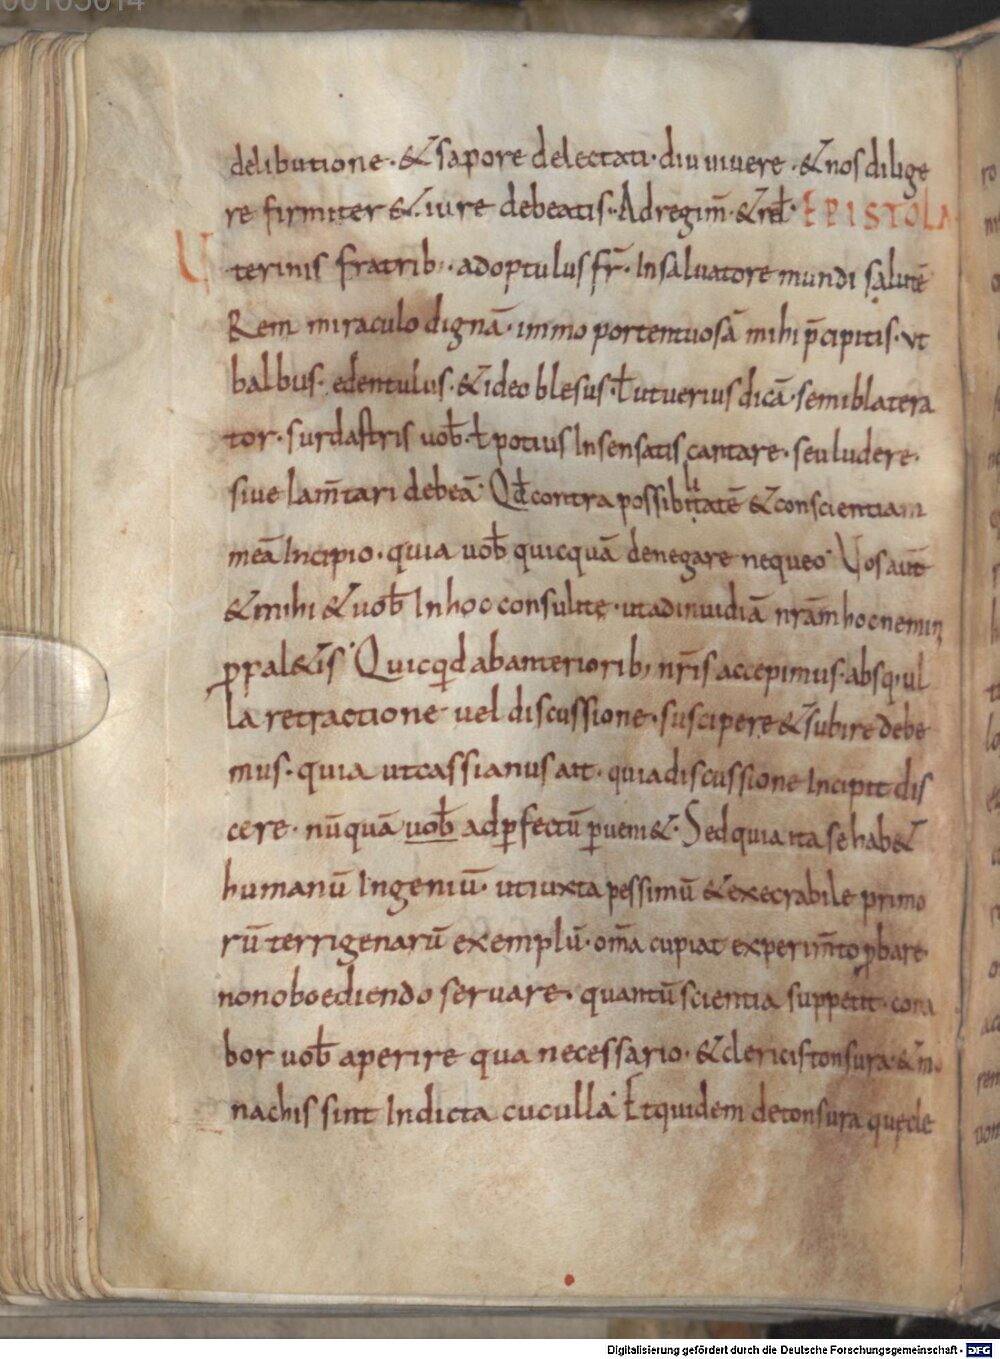 delibutione · & sapore delectati · diu uiuere · & nos dilige
re firmiter & iure debeatis · Ad regim̄ · & rel̄ · EPISTOLA
Uterinis fratrib; · adoptulus fr̄ · In saluatore mundi salutē
Rem miraculo dignā · immo portentuosā mihi p̄cipitis · vt
balbus · edentulus · & ideo blesus · ł ut uerius dicā · semiblatera
tor · surdastris uob̄ · ł potius Insensatis cantare · seu ludere ·
siue lam̄tari debeā · Qđ contra possibilitatē & conscientiam
meā Incipio · quia uob̄ quicquā denegare nequeo · Vos aut̄
& mihi & uob̄ In hoc consulite · ut ad inuidiā nr̄am hoc nemin
ꝓfal&is · Quicqid ab anteriorib; nr̄is accepimus · absq; ul
la retractione uel discussione · suscipere & subire debe
mus · quia ut cassianus ait · qui a discussione Incipit dis
cere · nūquā uob̄ ad ꝑfectū ꝑuem& · Sed quia ita se hab&
humanū Ingeniū · ut iuxta pessimū & execrabile primo
rū terrigenarū exemplū · om̄a cupiat experim̄to ꝓbare
non oboediendo seruare · quantū scientia suppetit · cona
bor uob̄ aperire qua necessario · & clericis tonsura · & mo
nachis sint Indicta cuculla · Et quidem de tonsura quę cle
Digitalisierung gefördert durch die Deutsche Forschungsgemeinschaft · DFG